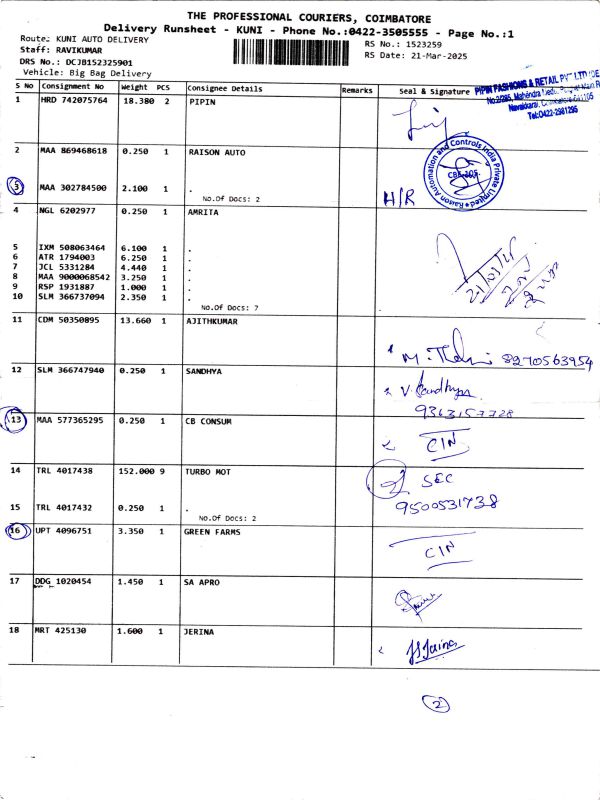 THE PROFESSIONAL COURIERS, COIMBATORE
Delivery Runsheet - KUNI - Phone No.:0422-3505555 - Page No.:1
Route: KUNI AUTO DELIVERY
RS No.: 1523259
Staff: RAVIKUMAR
RS Date: 21-Mar-2025
DRS No.: DCJB152325901
Vehicle: Big Bag Delivery
S No Consignment No Weight PCS Consignee Details Remarks Seal & Signature
PIPIN FASHIONS & RETAIL PVT LTD
Tel:0422-2981295
1 HRD 742075764 18.380 2 PIPIN
2 MAA 869468618 0.250 1 RAISON AUTO
Raison Automation and Controls India Private Limited
CBE-105
3 MAA 302784500 2.100 1 .
H/R
No.Of Docs: 2
4 NGL 6202977 0.250 1 AMRITA
5 IXM 508063464 6.100 1 .
6 ATR 1794003 6.250 1 .
7 JCL 5331284 4.440 1 .
8 MAA 9000068542 3.250 1 .
9 RSP 1931887 1.000 1 .
10 SLM 366737094 2.350 1 .
No.Of Docs: 7
21/03/25
11 CDM 50350895 13.660 1 AJITHKUMAR
8270563954
12 SLM 366747940 0.250 1 SANDHYA
V. Sandhya
9363157728
13 MAA 577365295 0.250 1 CB CONSUM
CIN
14 TRL 4017438 152.000 9 TURBO MOT
SEC
9500531738
15 TRL 4017432 0.250 1 .
No.Of Docs: 2
16 UPT 4096751 3.350 1 GREEN FARMS
CIN
17 DDG 1020454 1.450 1 SA APRO
18 MRT 425130 1.600 1 JERINA
2